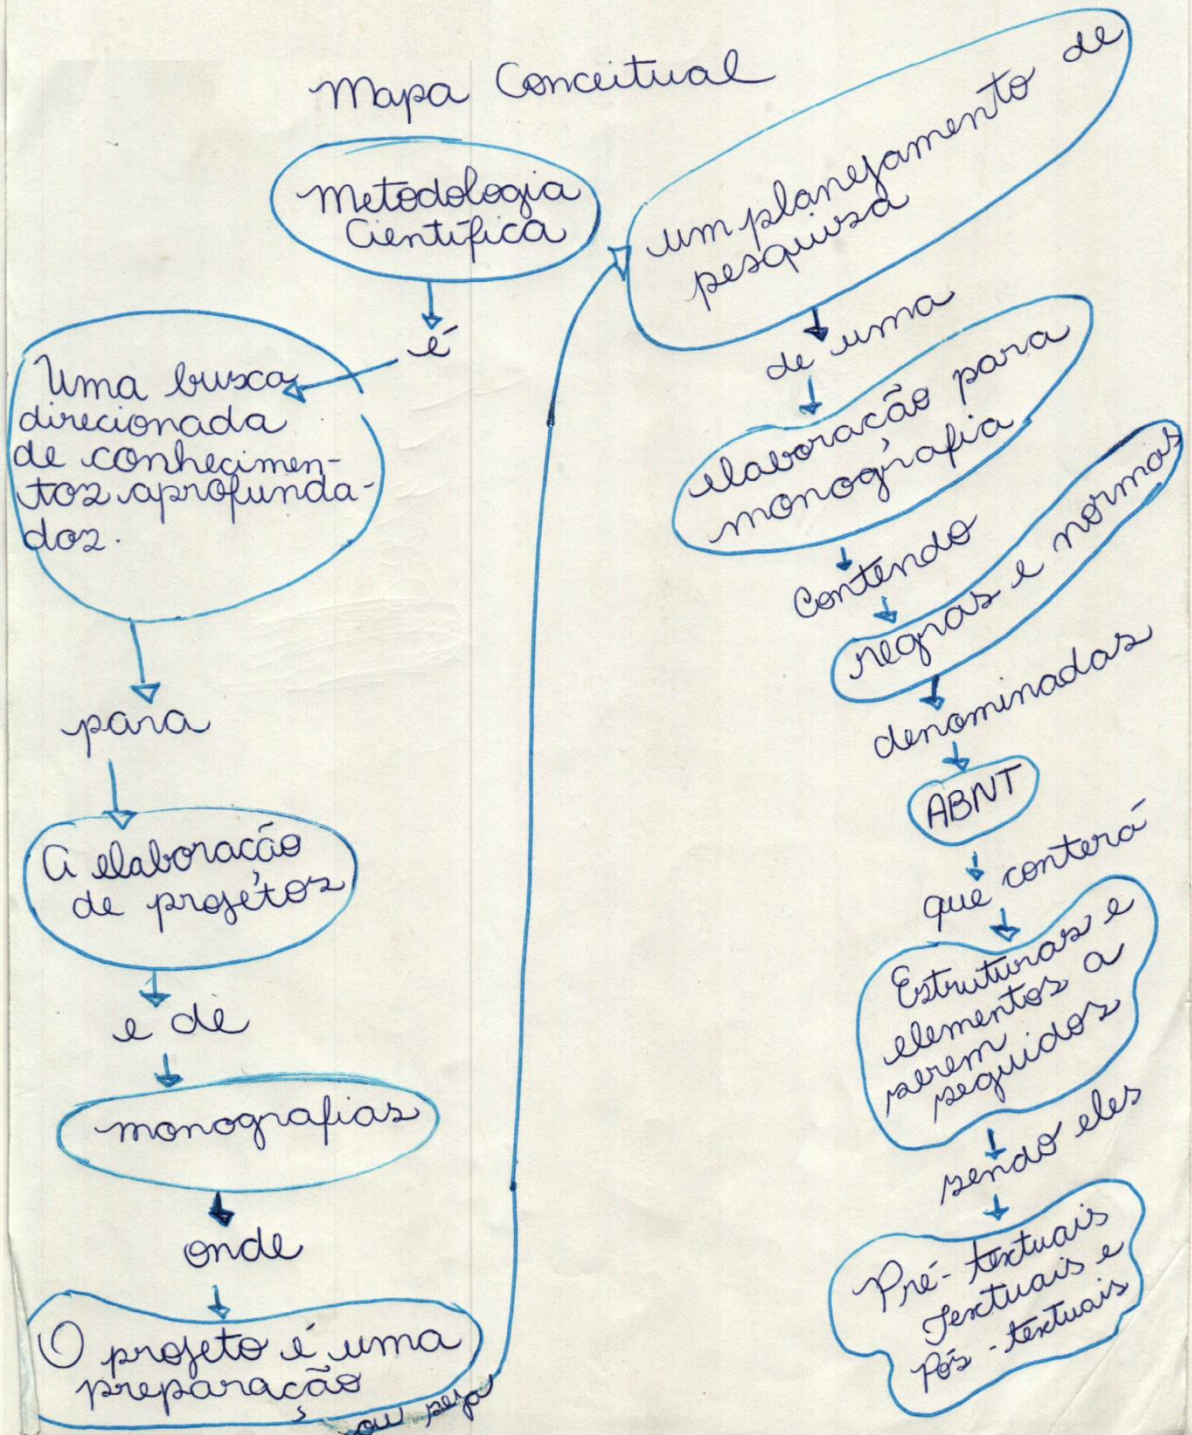 Mapa Conceitual
Metodologia
Científica
é
Uma busca
direcionada
de conhecimen-
tos aprofunda-
dos.
para
A elaboração
de projétos
e de
monografias
onde
O projeto é uma
preparação
ou seja
um planejamento de
pesquisa
de uma
elaboração para
monografia
Contendo
regras e normas
denominadas
ABNT
que conterá
Estruturas e
elementos a
serem
seguidos
sendo eles
Pré-textuais
Textuais e
Pós-textuais